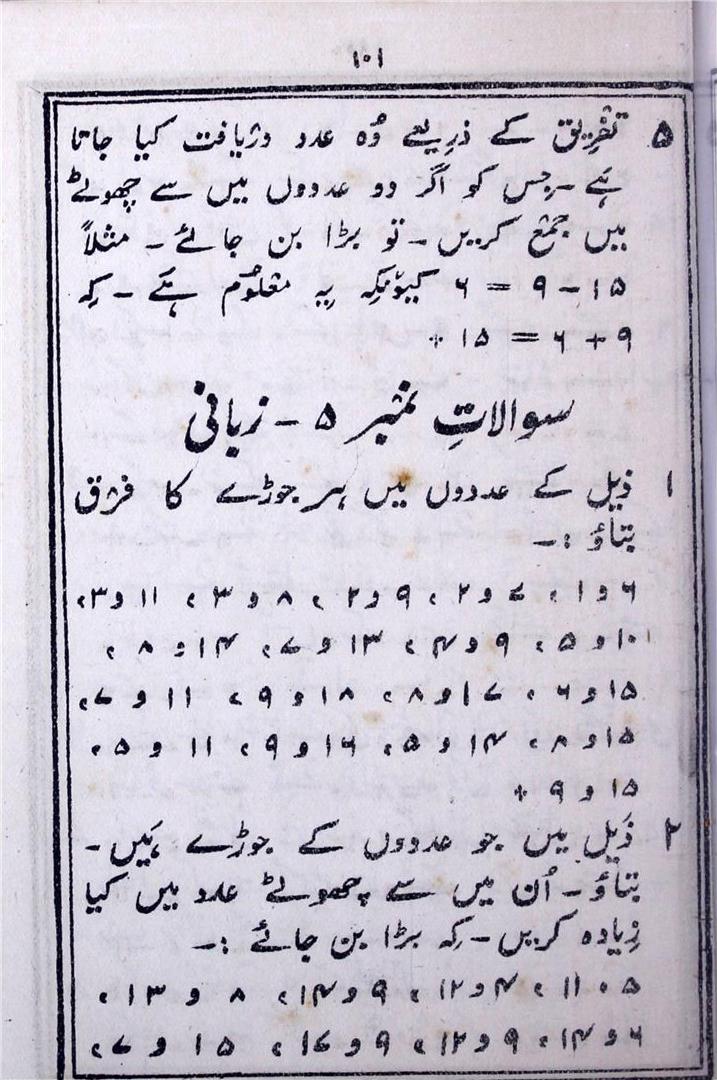 ۱۰۱
۵ تفریق کے ذریعے وہ عدد دریافت کیا جاتا
ہے ۔ جس کو اگر دو عددوں میں سے چھوٹے
میں جمع کریں ۔ تو بڑا بن جائے ۔ مثلاً
۱۵ - ۹ = ۶ کیونکہ یہ معلوم ہے ۔ کہ
۹ + ۶ = ۱۵ +
سوالاتِ نمبر ۵ - زبانی
۱ ذیل کے عددوں میں ہر جوڑے کا فرق
بتاؤ :-
۶ و ۱، ۷ و ۲، ۹ و ۲، ۸ و ۳، ۱۱ و ۳،
۱۰ و ۵، ۹ و ۴، ۱۳ و ۷، ۱۴ و ۸،
۱۵ و ۶، ۱۷ و ۸، ۱۸ و ۹، ۱۱ و ۷،
۱۵ و ۸، ۱۴ و ۵، ۱۶ و ۹، ۱۱ و ۵،
۱۵ و ۹ +
۲ ذیل میں جو عددوں کے جوڑے ہیں ۔
بتاؤ ۔ اُن میں سے چھوٹے عدد میں کیا
زیادہ کریں ۔ کہ بڑا بن جائے :-
۵ ، ۱۱، ۴ و ۱۲، ۹ و ۱۴، ۸ و ۱۳،
۶ و ۱۴، ۹ و ۱۲، ۹ و ۱۷، ۱۵ و ۷،